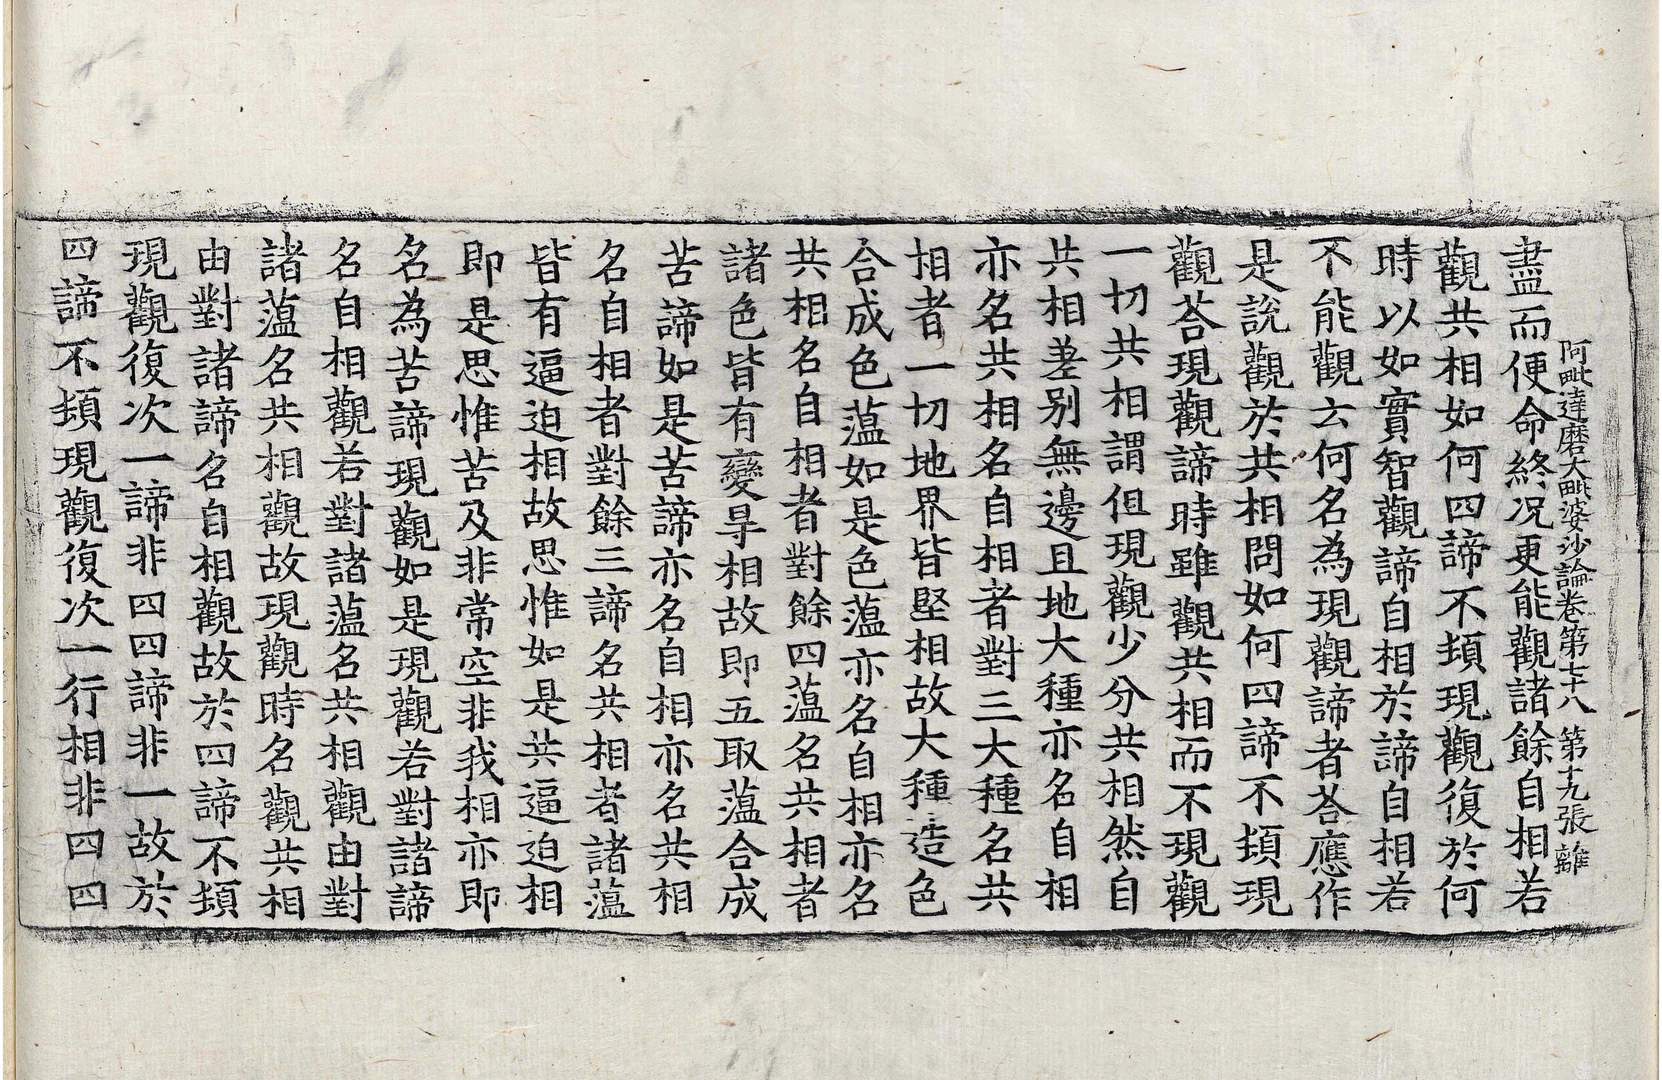 阿毗達磨大毗婆沙論卷第七十八 第十九張 離
盡而便命終况更能觀諸餘自相若
觀共相如何四諦不頓現觀復於何
時以如實智觀諦自相於諦自相若
不能觀云何名為現觀諦者荅應作
是說觀於共相問如何四諦不頓現
觀荅現觀諦時雖觀共相而不現觀
一切共相謂但現觀少分共相然自
共相差別無邊且地大種亦名自相
亦名共相名自相者對三大種名共
相者一切地界皆堅相故大種造色
合成色薀如是色薀亦名自相亦名
共相名自相者對餘四薀名共相者
諸色皆有變㝵相故即五取薀合成
苦諦如是苦諦亦名自相亦名共相
名自相者對餘三諦名共相者諸薀
皆有逼迫相故思惟如是共逼迫相
即是思惟苦及非常空非我相亦即
名為苦諦現觀如是現觀若對諸諦
名自相觀若對諸薀名共相觀由對
諸薀名共相觀故現觀時名觀共相
由對諸諦名自相觀故於四諦不頓
現觀復次一諦非四四諦非一故於
四諦不頓現觀復次一行相非四四